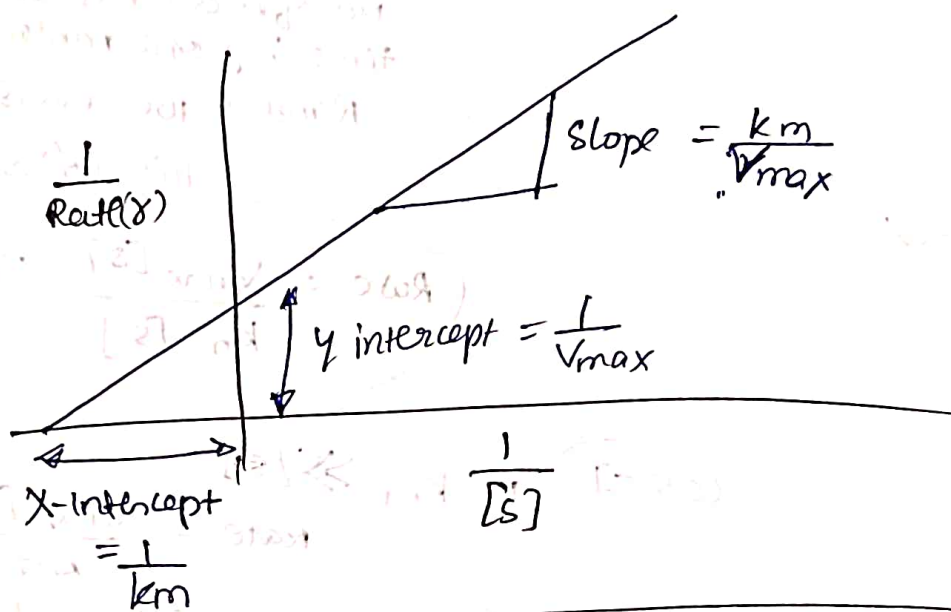 1
Rate(r)
Slope = km
Vmax
y intercept = 1
Vmax
1
[S]
X-intercept
= 1
km